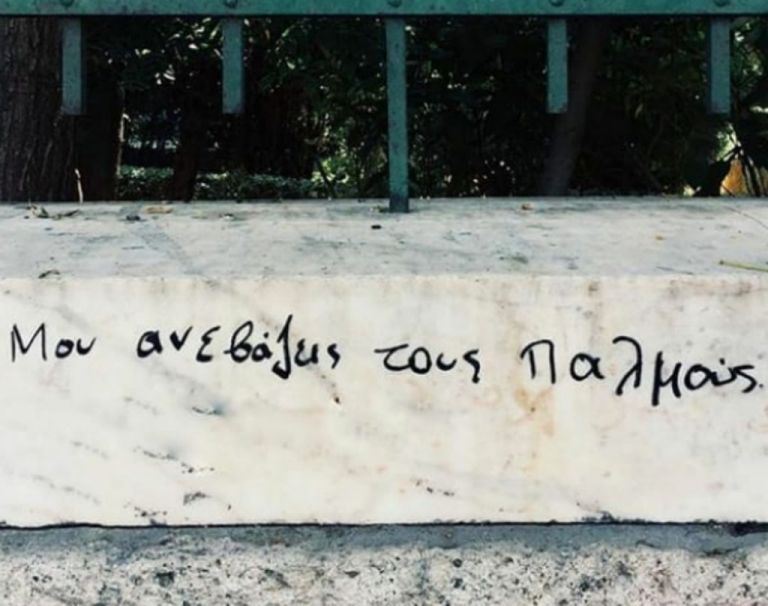 Μου ανεβάζεις τους παλμούς.